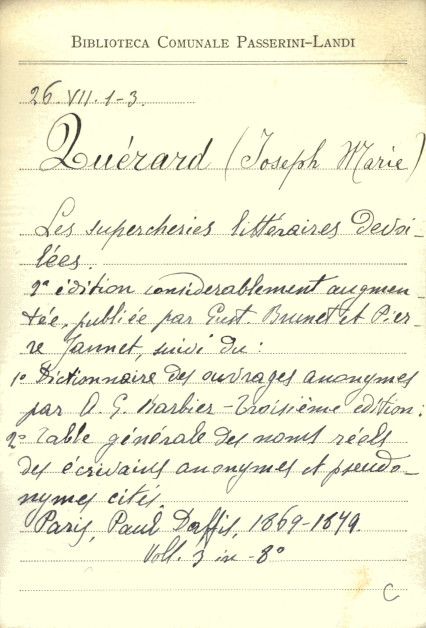 BIBLIOTECA COMUNALE PASSERINI-LANDI
26. VII. 1-3.
Quérard (Joseph Marie)
Les supercheries littéraires devoi-
lées.
2e édition considerablement augmen-
tée, publiée par Gust. Brunet et Pier-
re Jannet, suivi du:
1o Dictionnaire des ouvrages anonymes
par A. G. Barbier - Troisième edition:
2o Table générale des noms réels
des écrivains anonymes et pseudo-
nymes cités.
Paris, Paul Daffis, 1869-1879.
Voll. 3 in - 8o
C